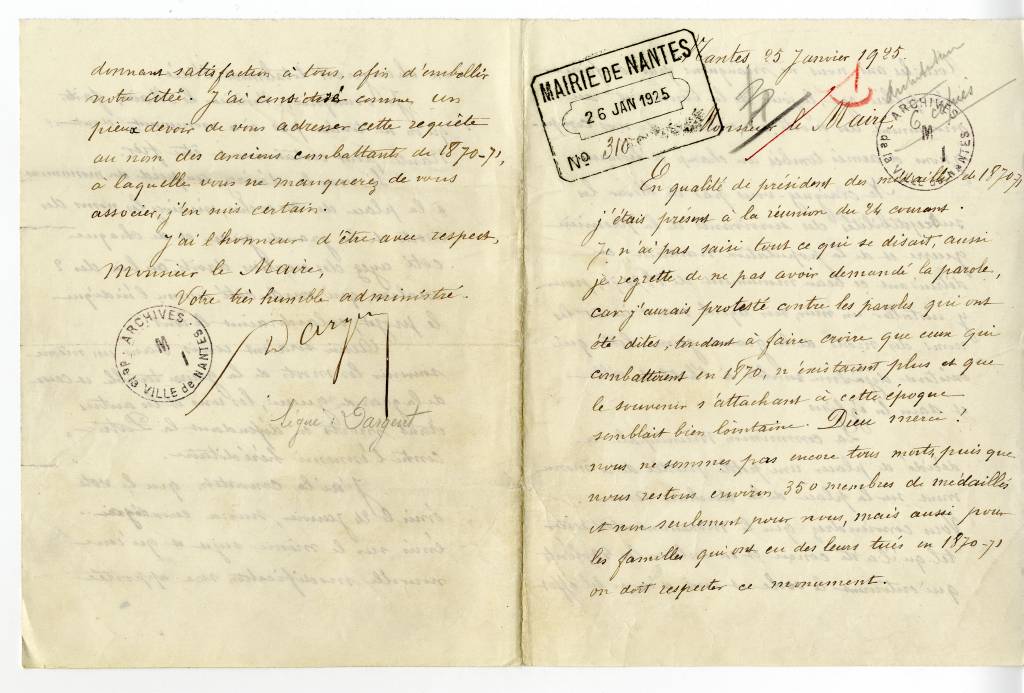 donnant satisfaction à tous, afin d'embellir
notre citée. J'ai considéré comme un
pieux devoir de vous adresser cette requête
au nom des anciens combattants de 1870-71,
à laquelle vous ne manquerez de vous
associer, j'en suis certain.
J'ai l'honneur d'être avec respect,
Monsieur le Maire,
Votre très humble administré.
Dargent
Signé : Dargent
ARCHIVES
M
1
de la VILLE de NANTES
Nantes, 25 Janvier 1925.
MAIRIE DE NANTES
26 JAN 1925
No 310
Monsieur le Maire
ARCHIVES
M
1
de la VILLE de NANTES
En qualité de président des médaillés de 1870-71
j'étais présent à la réunion du 24 courant.
Je n'ai pas saisi tout ce qui se disait, aussi
je regrette de ne pas avoir demandé la parole,
car j'aurais protesté contre les paroles qui ont
été dites, tendant à faire croire que ceux qui
combattirent en 1870, n'éxistaient plus et que
le souvenir s'attachant à cette époque
semblait bien lointaine. Dieu merci!
nous ne sommes pas encore tous morts, puis que
nous restons environ 350 membres de médaillés
et non seulement pour nous, mais aussi pour
les familles qui ont eu des leurs tués en 1870-71
on doit respecter ce monument.